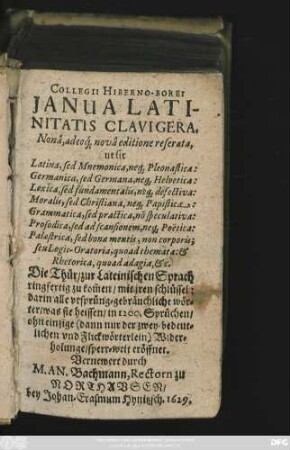 COLLEGII HIBERNO-BOREI
JANUA LATI-
NITATIS CLAVIGERA.
Nonâ, adeoq́, novâ editione reserata,
ut sit
Latina, sed Mnemonica, neq, Pleonastica:
Germanica, sed Germana, neq, Helvetica:
Lexica, sed fundamentalis, neq, defectiva:
Moralis, sed Christiana, neq, Papistica:
Grammatica, sed practica, nō speculativa:
Prosodica, sed ad scansionem, neq, Poëtica:
Palæstrica, sed bona mentis, non corporis;
seu Logic-Oratoria, quoad themata: &
Rhetorica, quoad adagia, &c.
Die Thür/ zur Lateinischen Sprach
ringfertig zu komen/ mit jren schlüssel:
darin alle vrsprüng-gebräuchliche wör-
ter/ was sie heissen/ in 1200. Sprüchen/
ohn einzige (dann nur der zwey-bedeut-
lichen vnd Flickwörterlein) Wider-
holunge/ sperr-weit eröffnet.
Vernewert durch
M. AN. Bachmann, Rectorn zu
NORTHAVSEN/
bey Johan-Erasmum Hynitzsch. 1629.